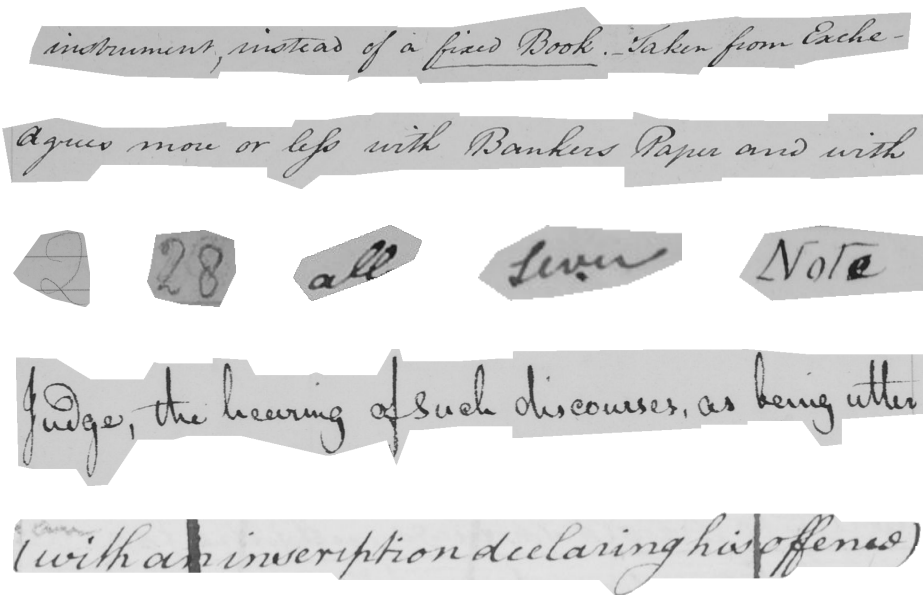 instrument, instead of a fixed Book. Taken from Exche-
agrees more or less with Bankers Paper and with
2 28 all Note
Judge, the hearing of such discourses, as being utter
(with an inscription declaring his offence)